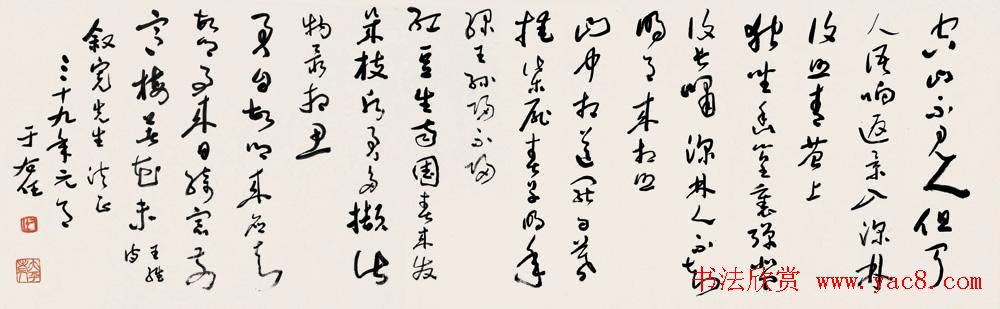 空山不見人但聞
人語响返景入深林
復照青苔上
獨坐幽篁裏彈琴
復長嘯深林人不知
明月來相照
山中相送罷日暮
掩柴扉春草明年
綠王孫歸不歸
紅豆生南國春來發
幾枝願君多擷此
物最相思
君自故鄉來應知
故鄉事來日綺窗前
寒梅著花未 王維詩
叙完先生法正
三十九年元月
于右任
书法欣赏 www.yac8.com